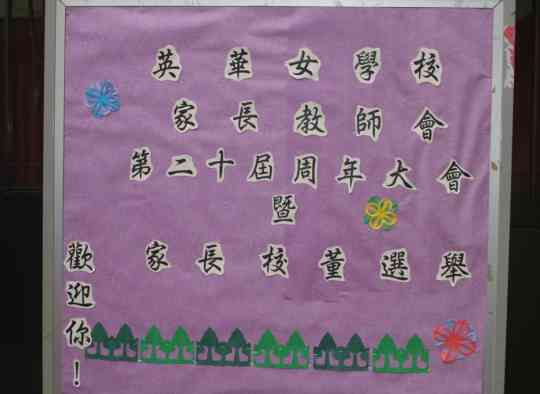 英華女學校
家長教師會
第二十屆周年大會
暨
家長校董選舉
歡迎你！